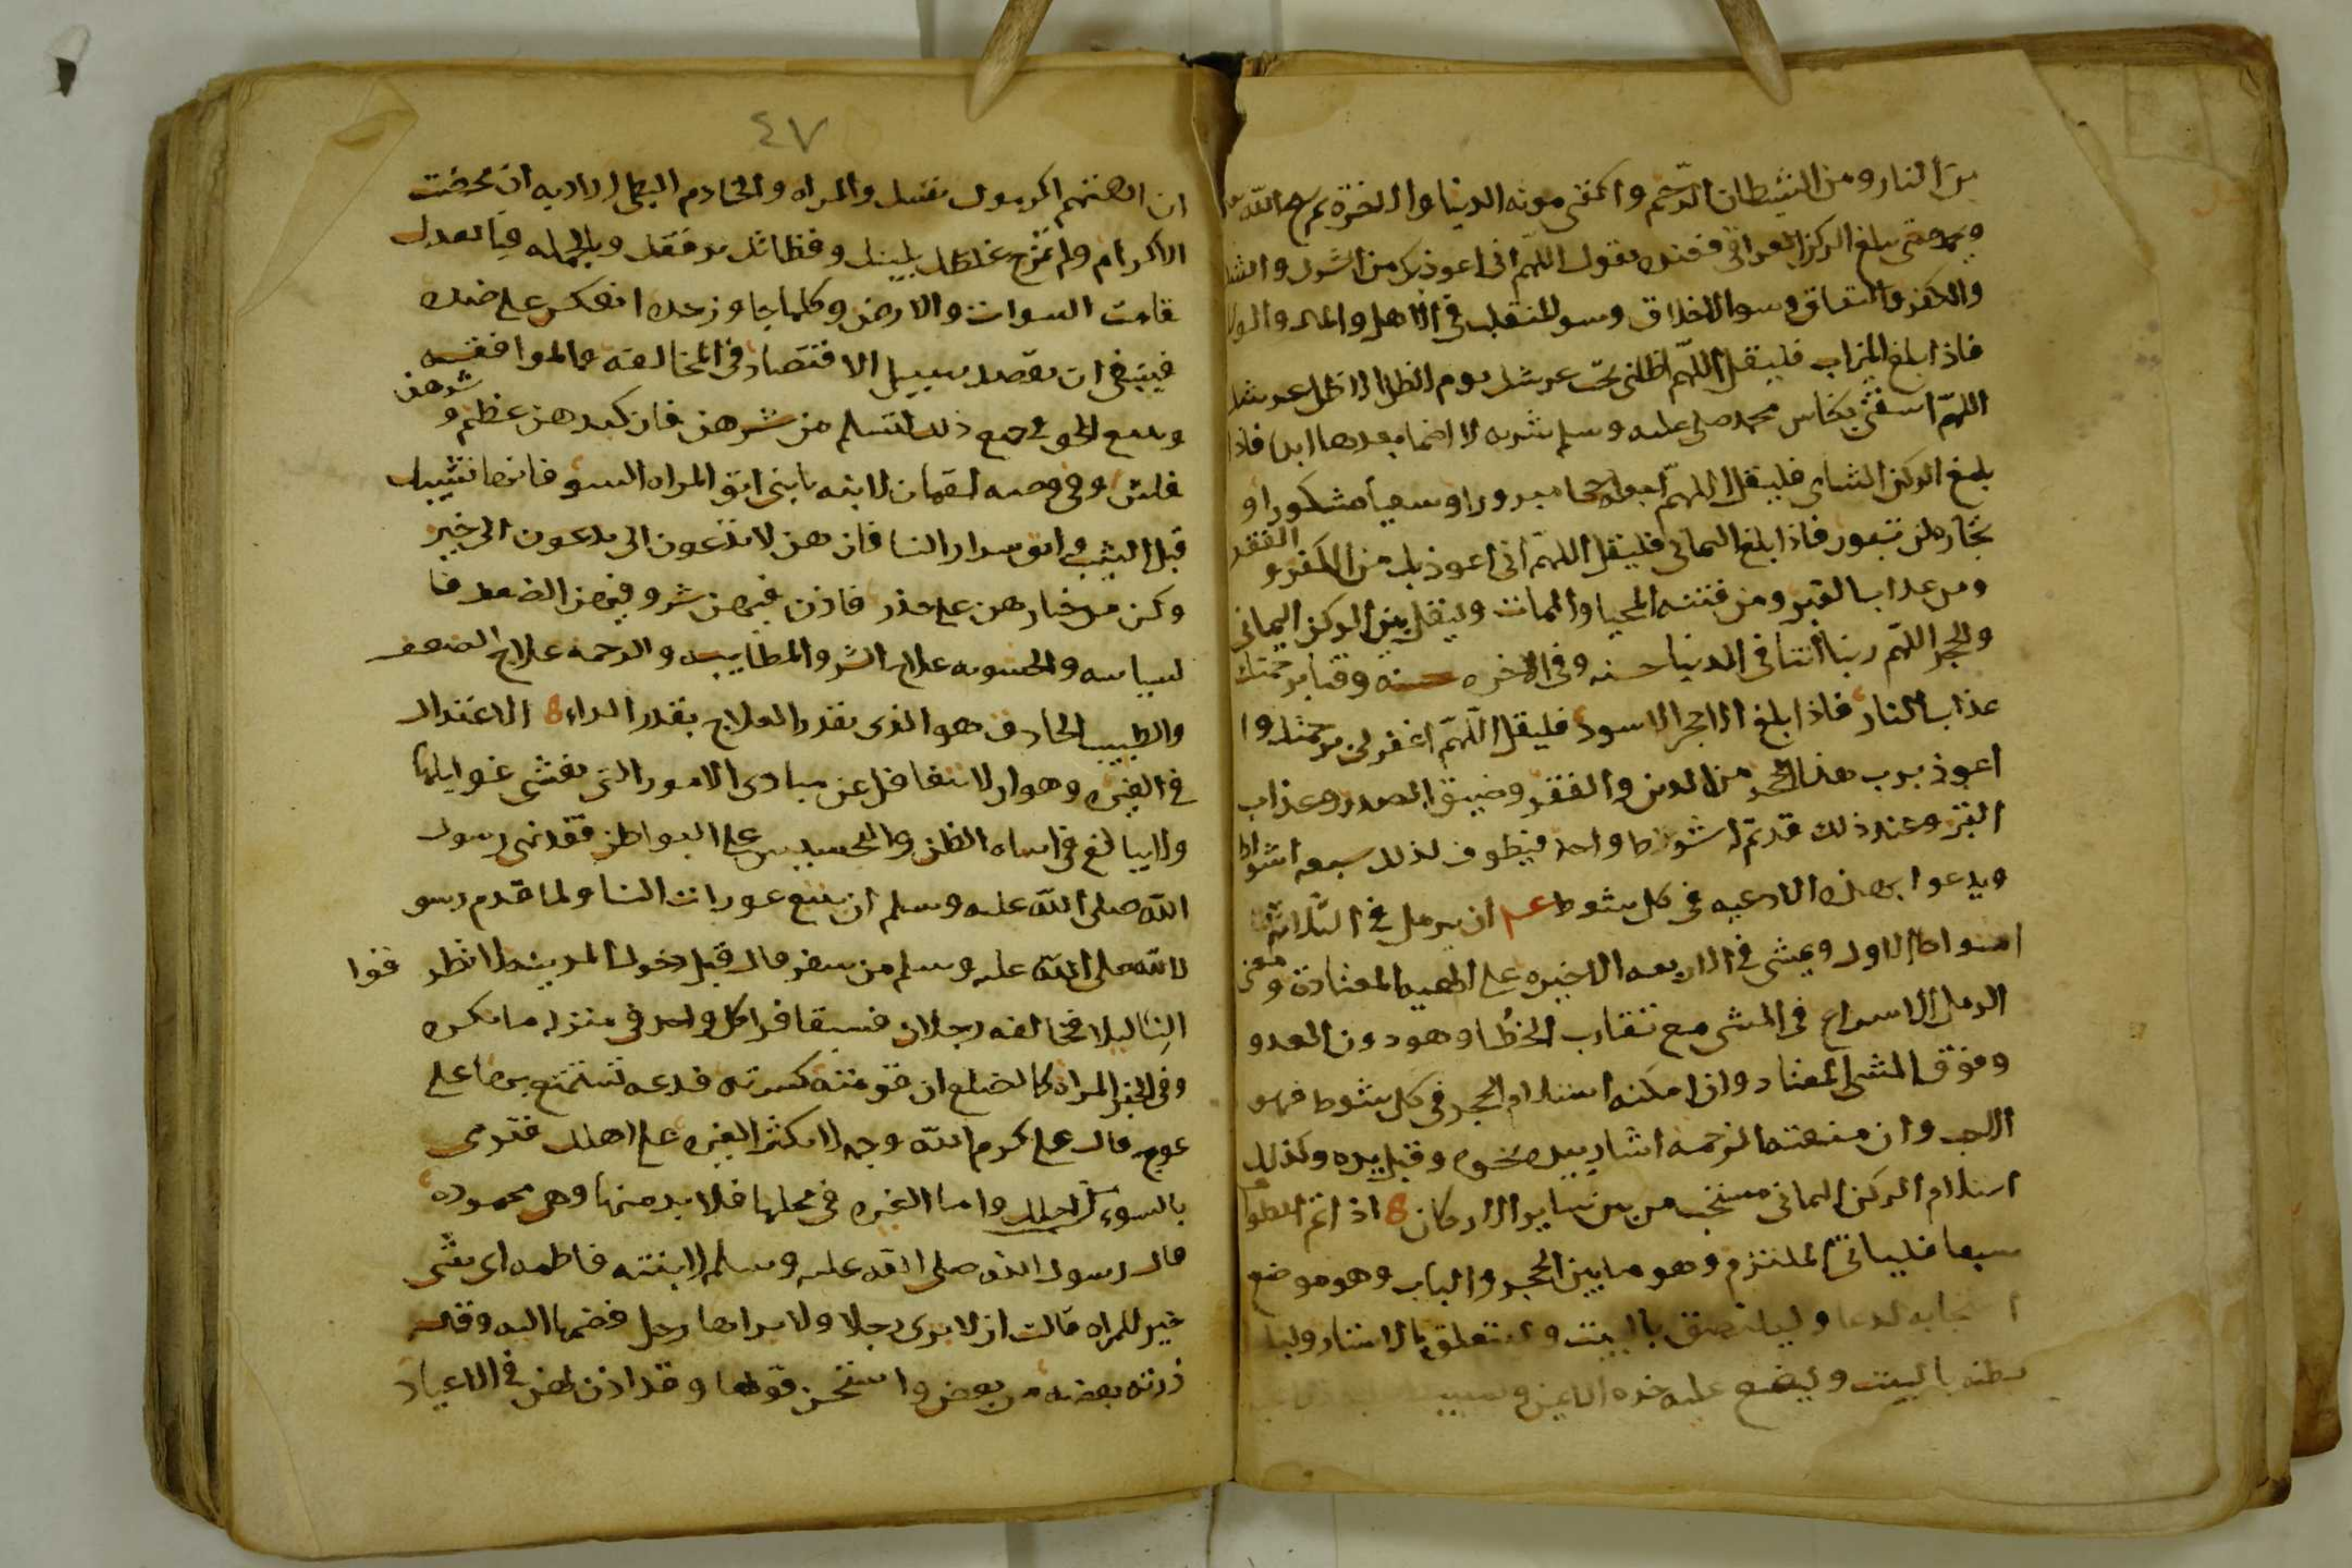 من النار ومن الشيطان الرجيم واكفني مونه الدنيا والاخرة ثم يسبح الله
ويحمده حتى يبلغ الركن العراقي فعنده يقول اللهم اني اعوذ بك من الشرك والشك
والكفر والنفاق وسو الاخلاق وسو المنقلب في الاهل والمال والولد
فاذا بلغ الميزاب فليقل اللهم اظلني تحت عرشك يوم لا ظل الا ظل عرشك
اللهم اسقني بكاس محمد صلى عليه وسلم شربه لا اظما بعدها ابدا فاذا
بلغ الركن الشامي فليقل اللهم اجعله حجا مبرورا وسعيا مشكورا و
تجارة لن تبور فاذا بلغ اليماني فليقل اللهم اني اعوذ بك من الكفر و الفقر
ومن عذاب القبر ومن فتنه المحيا والممات وليقل بين الركن اليماني
والحجر اللهم ربنا اتنا في الدنيا حسنه وفي الاخره حسنة وقنا برحمتك
عذاب النار فاذا بلغ الحجر الاسود فليقل اللهم اغفر لي برحمتك وا
اعوذ برب هذا الحجر من الدين والفقر وضيق الصدر وعذاب
القبر وعند ذلك قد تم له شوط واحد فيطوف لذلك سبعه اشواط
ويدعوا بهذه الادعيه في كل شوط عم ان يرمل في الثلاثة
اشواط الاول ويمشي في الاربعه الاخيره على الهيه المعتادة ومعنى
الرمل الاسراع في المشي مع تقارب الخطا وهو دون العدو
وفوق المشي المعتاد وان امكنه استلام الحجر في كل شوط فهو
الاحب وان منعته الزحمه اشار بيده نحوه وقبل يده وكذلك
استلام الركن اليماني مستحب من بين ساير الاركان اذا تم الطوا
سبعا فليات الملتزم وهو ما بين الحجر والباب وهو موضع
استجابه الدعا وليلتصق بالبيت وليتعلق بالاستار وليلـ
بطنه بالبيت وليضع عليه خده الايمن
٤٧
ان اهنتهم اكرموك نفسك والمراه والخادم النبطي اراد به ان محضت
الاكرام ولم تمزج غلظك بلينك وفظاظتك برفقك وبالجمله فبالعدل
قامت السموات والارض وكلما جاوز حده انعكس على ضده
فينبغي ان يقصد سبيل الاقتصاد في المخالفة والموافقه
ويتبع الحق في جميع ذلك لتسلم من شرهن فان كيدهن عظيم و شرهن
فاش وفي وصيه لقمان لابنه يابني اتق المراه السوء فانها تشيبك
قبل الشيب واتق شرار النسا فان هن لا يدعون الى يدعون الى خير
وكن من خيارهن على حذر فاذن فيهن شر وفيهن الضعف فا
لسياسه والخشونه علاج الشر والمطايبه والرحمه علاج الضعف
والطبيب الحاذق هو الذي يقدر العلاج بقدر الداء الاعتدال
في الغيره وهو ان لا يتغافل عن مبادى الامور التي تخشى غوايلها
ولا يبالغ في اساه الظن والتجسيس على البواطن فقد نهى رسول
الله صلى الله عليه وسلم ان يتبع عورات النسا ولما قدم رسو
لالله صلى الله عليه وسلم من سفر قال قبل دخول المدينه لا تطرقوا
النسا ليلا فخالفه رجلان فسبقا فراى كل واحد في منزله ما يكره
وفي الخبر المراه كالضلع ان قومته كسرته فدعه تستمتع بها على
عوج قال علي كرم الله وجهه لا تكثر الغيره على اهلك فترمى
بالسوء من اجلك واما الغيره في محلها فلا بد منها وهي محموده
قال رسول الله صلى الله عليه وسلم لابنته فاطمه اي شي
خير للمراه قالت ان لا يرى رجلا ولا يراها رجل فضمها اليه وقال
ذريه بعضها من بعض واستحسن قولها وقد اذن لهن في الاعياد